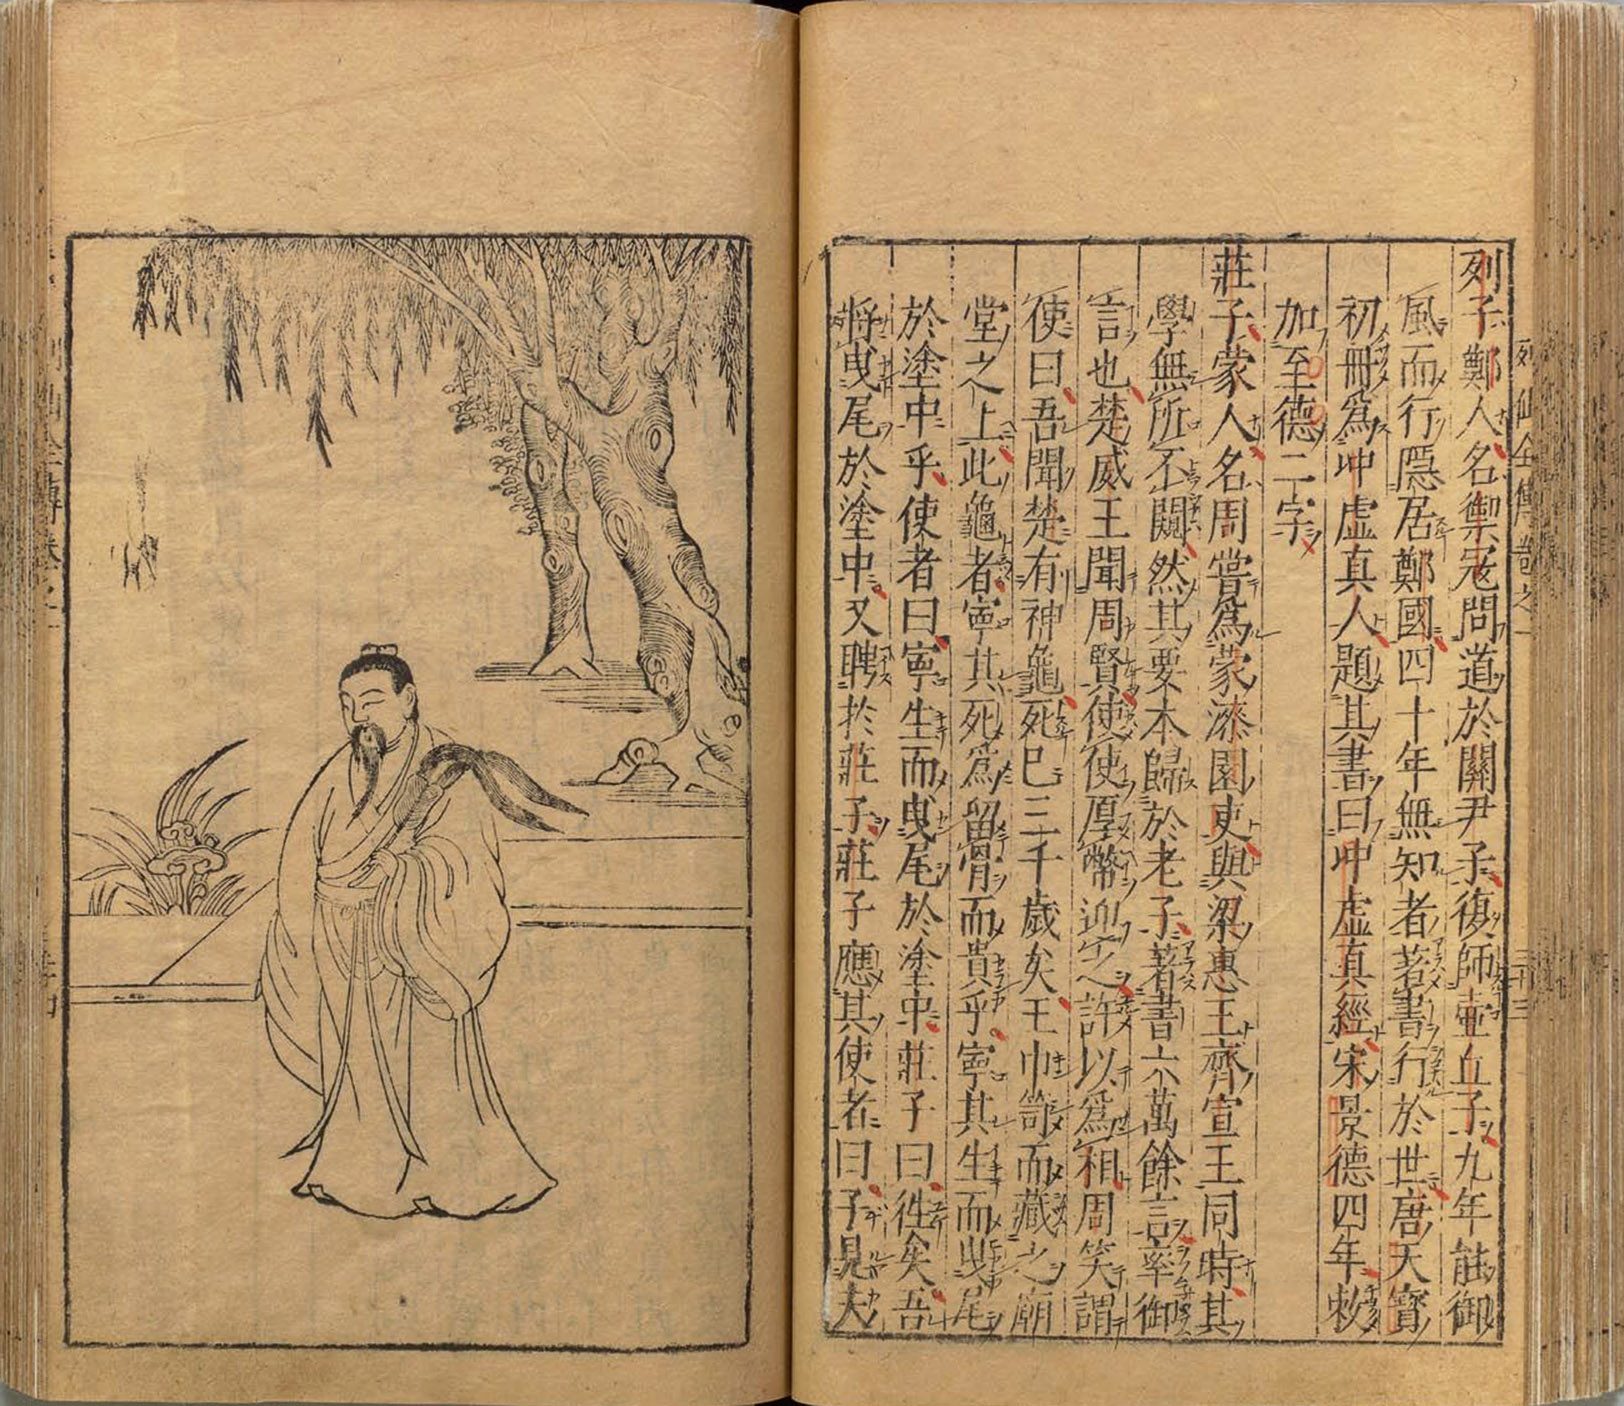 列子鄭人名禦冦問道於關尹子復師壷丘子九年能御
風而行隠居鄭國四十年無知者著書行於世唐天寳
初冊爲冲虚真人題其書曰冲虚真經宋景德四年敕
加至德二字
莊子蒙人名周嘗爲蒙漆園吏與梁惠王齊宣王同時其
學無所不闚然其要本歸於老子著書六萬餘言率御
言也楚威王聞周賢使使厚幣迎之許以爲相周笑謂
使曰吾聞楚有神龜死巳三千歳矣王巾笥而藏之廟
堂之上此龜者寧其死爲留骨而貴乎寧其生而曳尾
於塗中乎使者曰寧生而曳尾於塗中莊子曰徃矣吾
將曳尾於塗中又聘於莊子莊子應其使者曰子見夫
列仙全傳卷之一
三十三